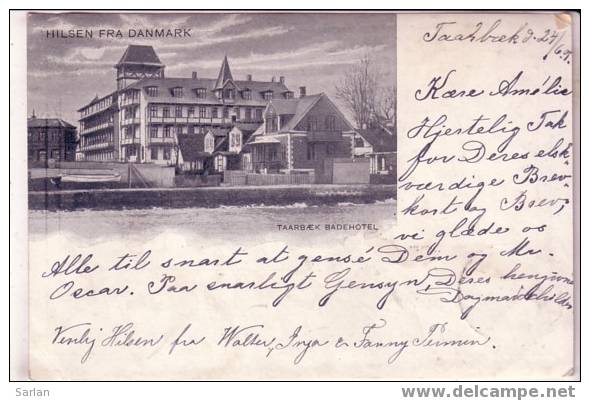 HILSEN FRA DANMARK
Taarbæk d. 24/6.
Kære Amélie
Hjertelig Tak
for Deres elsk-
værdige Brev-
kort og Brev,
vi glæde os
TAARBÆK BADEHOTEL
Alle til snart at gensé Dem og Mr.
Oscar. Paa snarligt Gensyn, Deres hengivne
Venlig Hilsen fra Walter, Inga & Fanny
Sarlan
www.delcampe.net